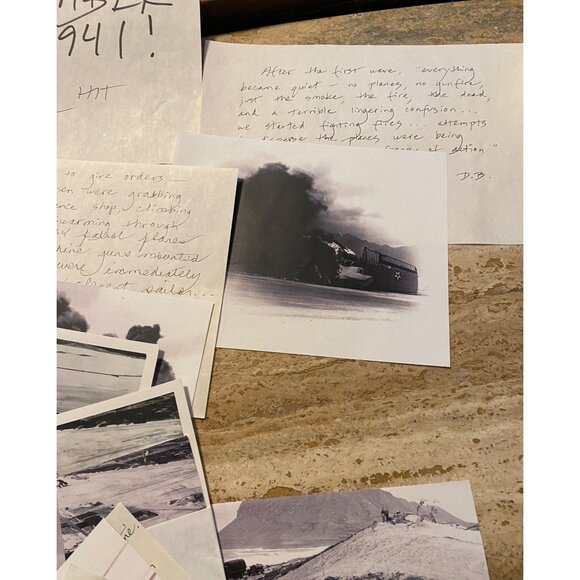 941!
HIT
After the first wave, "everything
became quiet – no planes, no gunfire,
just the smoke, the fire, the dead,
and a terrible lingering confusion...
we started fighting fires... attempts
the planes were being
of action"
D.B.
to give orders –
were grabbing
shop, climbing
swarming through
patrol planes
guns mounted
were immediately
sailor...